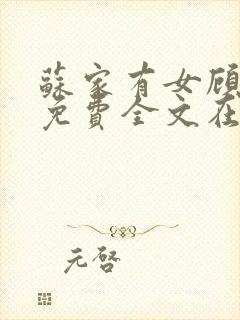 蘇家有女顧
免費全文在
元啓